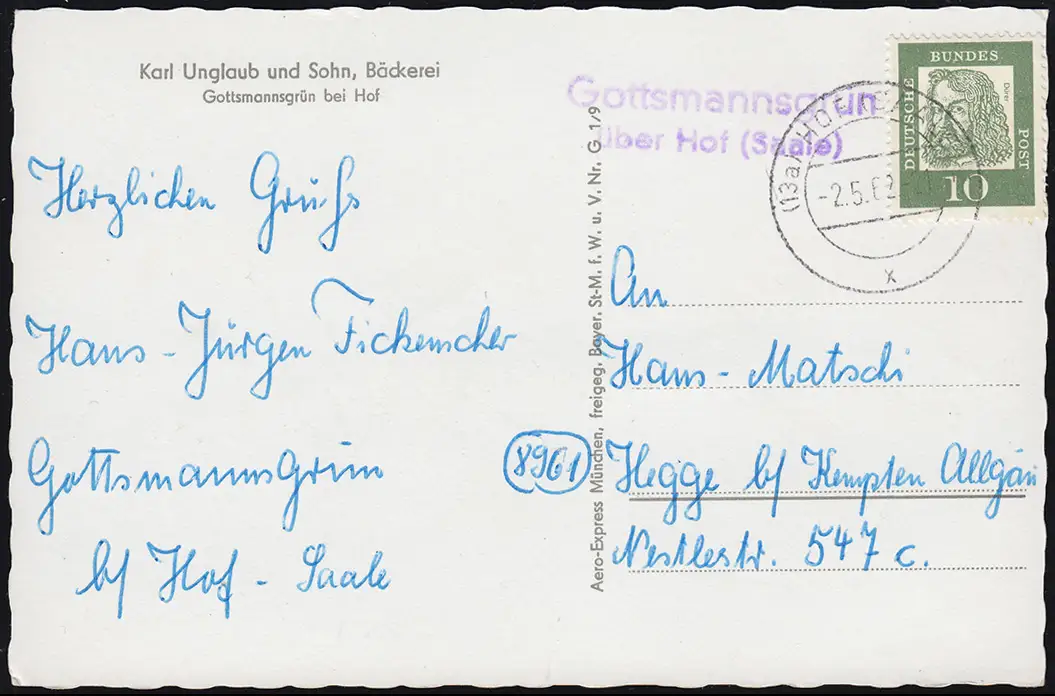 Karl Unglaub und Sohn, Bäckerei
Gottsmannsgrün bei Hof
Herzlichen Gruß
Hans-Jürgen Fickenscher
Gottsmannsgrün
b/ Hof - Saale
Aero-Express München, freigeg. Bayer. St-M. f. W. u. V. Nr. G. 1/9
Gottsmannsgrün
über Hof (Saale)
(13a) HOF
-2.5.62
x
BUNDES
DEUTSCHE
POST
Dürer
10
An
Hans - Matschi
(8961) Hegge b/ Kempten Allgäu
Nestlestr. 547 c.